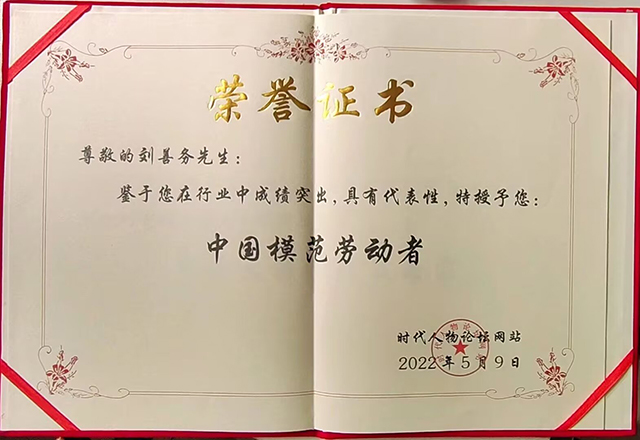 荣誉证书
尊敬的刘善务先生：
鉴于您在行业中成绩突出，具有代表性，特授予您：
中国模范劳动者
时代人物论坛网站
2022年5月9日